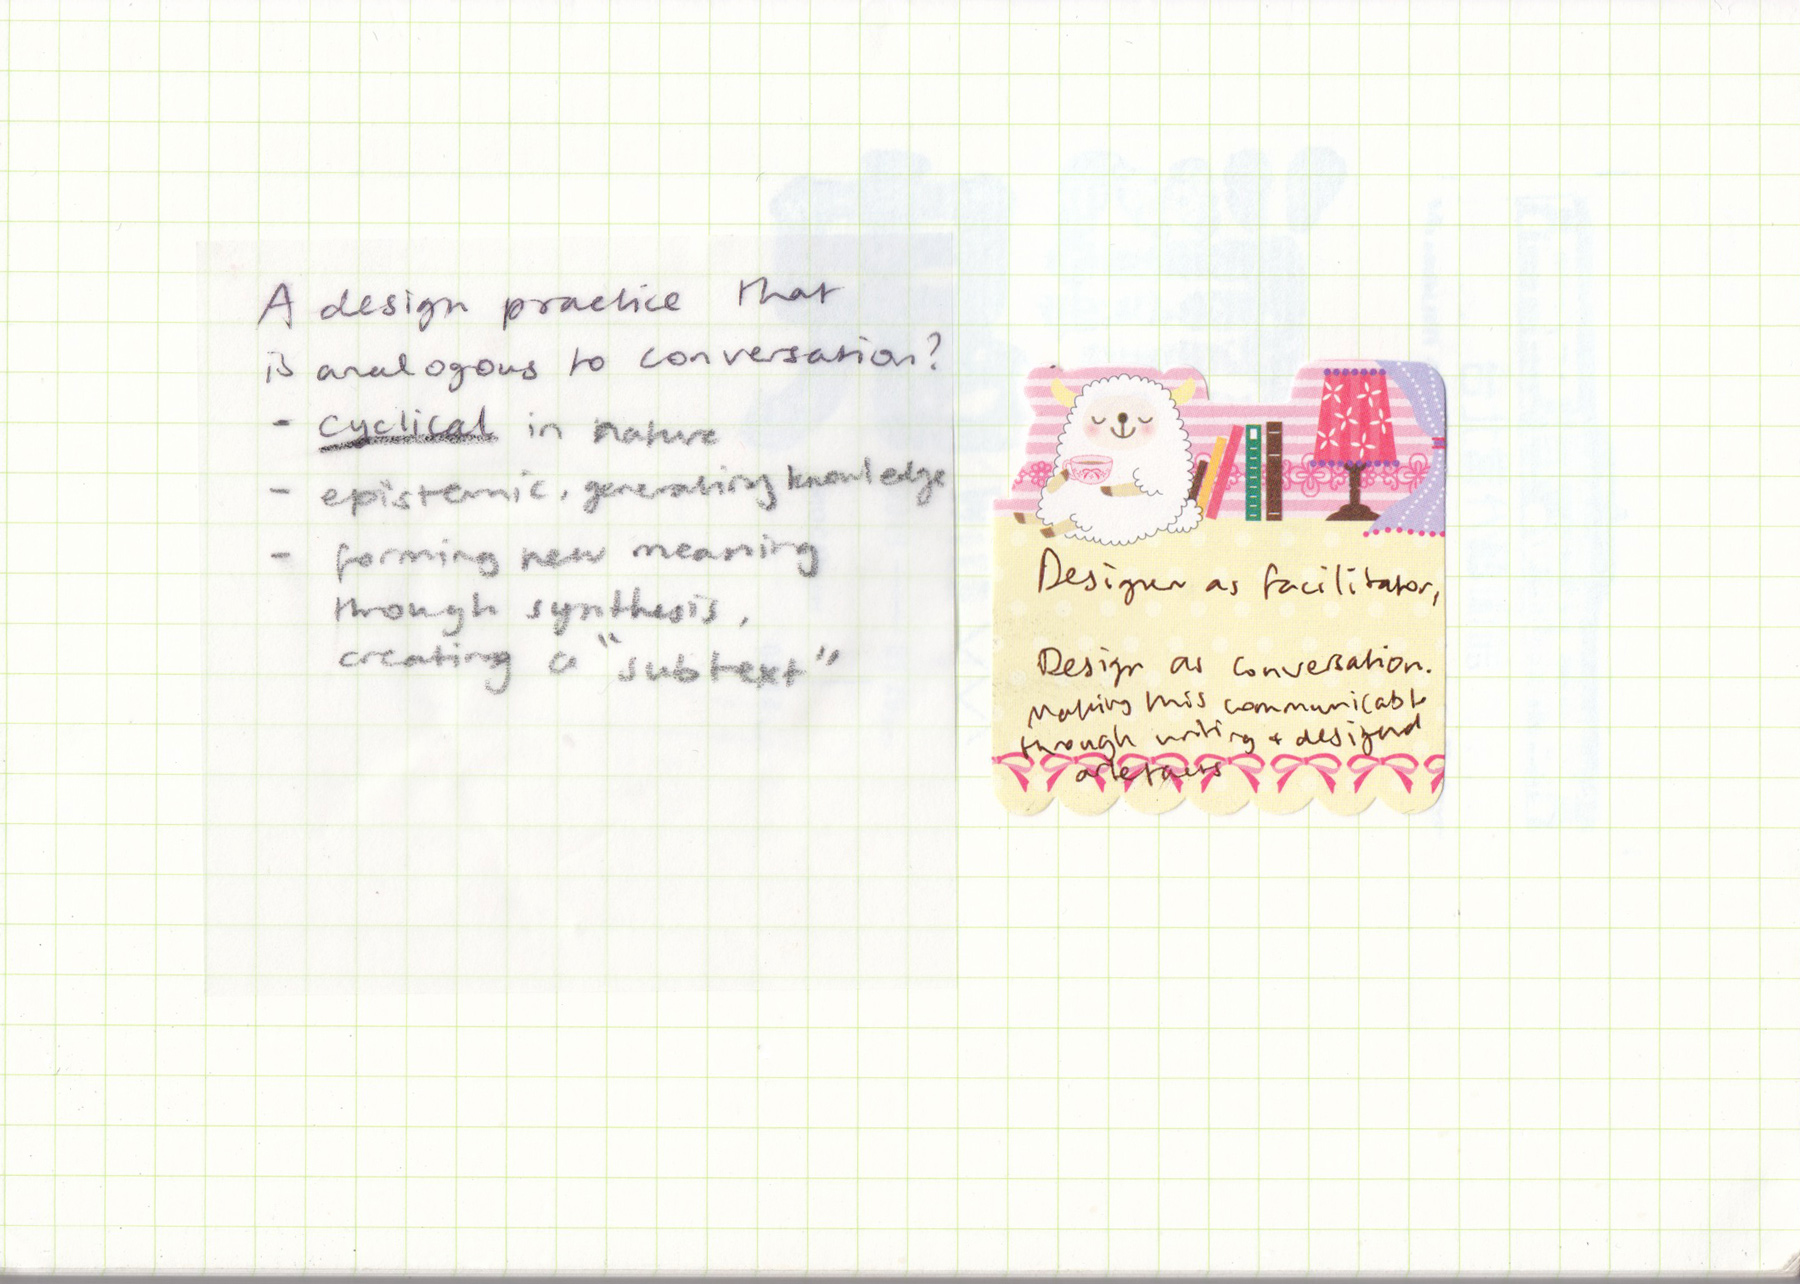 A design practice that
is analogous to conversation?
- cyclical in nature
- epistemic, generating knowledge
- forming new meaning
through synthesis,
creating a "subtext"
Designer as facilitator,
Design as conversation.
Making this communicable
through writing + designed
artefacts